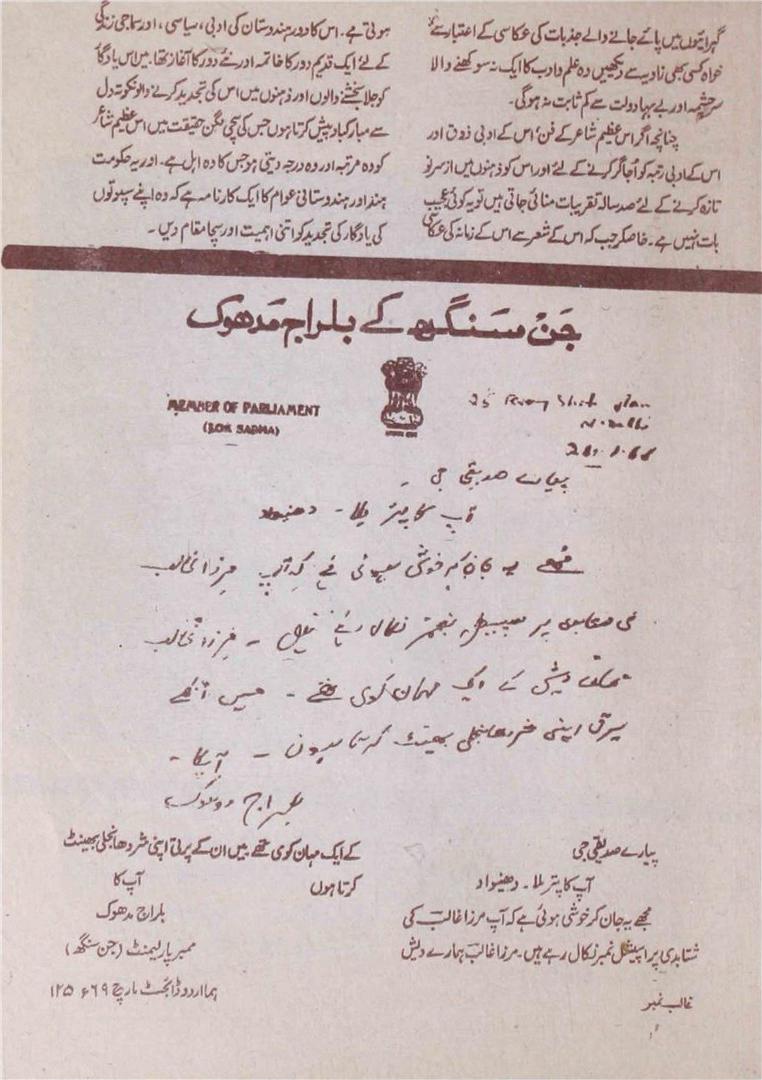 گہرائیوں میں پائے جانے والے جذبات کی عکاسی کے اعتبار سے
خواہ کسی بھی زاویہ سے دیکھیں وہ علم و ادب کا ایک نہ سوکھنے والا
سرچشمہ اور بے بہا دولت سے کم ثابت نہ ہوگی۔
چنانچہ اگر اس عظیم شاعر کے فن، اس کے ادبی ذوق اور
اس کے ادبی رتبہ کو اُجاگر کرنے کے لئے اور اس کو ذہنوں میں از سر نو
تازہ کرنے کے لئے صد سالہ تقریبات منائی جاتی ہیں تو یہ کوئی عجیب
بات نہیں ہے۔ خاصکر جب کہ اس کے شعر سے اس کے زمانہ کی عکاسی
ہوتی ہے۔ اس کا دور ہندوستان کی ادبی، سیاسی، اور سماجی زندگی
کے لئے ایک قدیم دور کا خاتمہ اور نئے دور کا آغاز تھا۔ میں اس یادگار
کو جلا بخشنے والوں اور ذہنوں میں اس کی تجدید کرنے والونکو تہ دل
سے مبارکباد پیش کرتا ہوں جس کی سچی لگن حقیقت میں اس عظیم شاعر
کو وہ مرتبہ اور وہ درجہ دیتی ہو جس کا وہ اہل ہے۔ اور یہ حکومت
ہند اور ہندوستانی عوام کا ایک کارنامہ ہے کہ وہ اپنے سپوتوں
کی یادگار کی تجدید کو اتنی اہمیت اور سچا مقام دیں۔
جَن سَنگھ کے بلراج مَدھوک
MEMBER OF PARLIAMENT
(LOK SABHA)
N. Delhi
پیارے صدیقی جی۔
آپ کا پتر ملا۔ دھنیواد
مجھے یہ جان کر خوشی ہوئی ہے کہ آپ مرزا غالب
کی شتابدی پر سپیشل نمبر نکال رہے ہیں۔ مرزا غالب
ہمارے دیش کے ایک مہان کوی تھے۔ میں انکے
پرتی اپنی شردھانجلی بھینٹ کرتا ہوں۔ آپکا۔
بلراج مدھوک
پیارے صدیقی جی
آپ کا پتر ملا۔ دھنیواد
مجھے یہ جان کر خوشی ہوئی ہے کہ آپ مرزا غالب کی
شتابدی پر اسپیشل نمبر نکال رہے ہیں۔ مرزا غالب ہمارے دیش
کے ایک مہان کوی تھے میں ان کے پرتی اپنی شردھانجلی بھینٹ
کرتا ہوں
آپ کا
بلراج مدھوک
ممبر پارلیمنٹ (جن سنگھ)
غالب نمبر
ہما اردو ڈائجسٹ مارچ ۶۹ء ۱۲۵